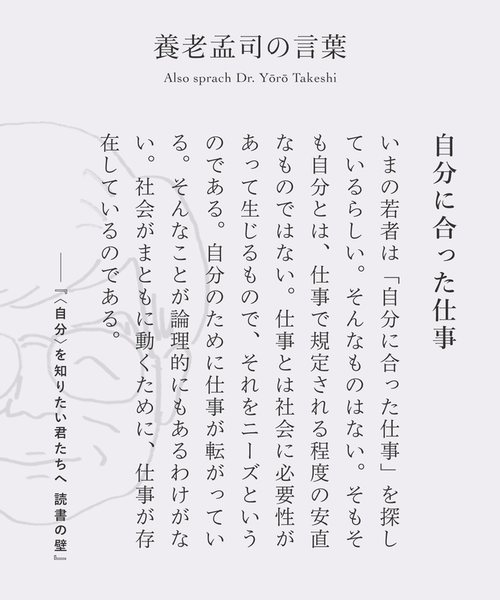 養老孟司の言葉
Also sprach Dr. Yōrō Takeshi
自分に合った仕事
いまの若者は「自分に合った仕事」を探し
ているらしい。そんなものはない。そもそ
も自分とは、仕事で規定される程度の安直
なものではない。仕事とは社会に必要性が
あって生じるもので、それをニーズという
のである。自分のために仕事が転がってい
る。そんなことが論理的にもあるわけがな
い。社会がまともに動くために、仕事が存
在しているのである。
──『〈自分〉を知りたい君たちへ 読書の壁』